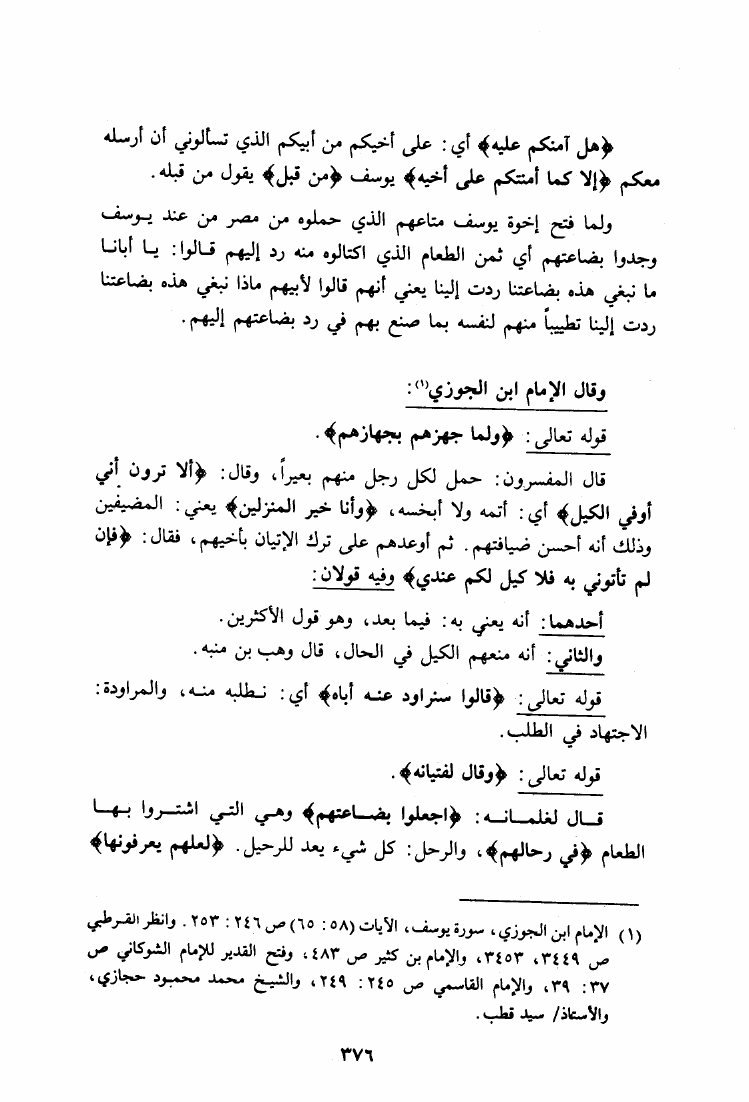 ﴿هل آمنكم عليه﴾ أي: على أخيكم من أبيكم الذي تسألوني أن أرسله
معكم ﴿إلا كما أمنتكم على أخيه﴾ يوسف ﴿من قبل﴾ يقول من قبله.
ولما فتح إخوة يوسف متاعهم الذي حملوه من مصر من عند يوسف
وجدوا بضاعتهم أي ثمن الطعام الذي اكتالوه منه رد إليهم قالوا: يا أبانا
ما نبغي هذه بضاعتنا ردت إلينا يعني أنهم قالوا لأبيهم ماذا نبغي هذه بضاعتنا
ردت إلينا تطييباً منهم لنفسه بما صنع بهم في رد بضاعتهم إليهم.
وقال الإمام ابن الجوزي(١):
قوله تعالى: ﴿ولما جهزهم بجهازهم﴾.
قال المفسرون: حمل لكل رجل منهم بعيراً، وقال: ﴿ألا ترون أني
أوفي الكيل﴾ أي: أتمه ولا أبخسه، ﴿وأنا خير المنزلين﴾ يعني: المضيفين
وذلك أنه أحسن ضيافتهم. ثم أوعدهم على ترك الإتيان بأخيهم، فقال: ﴿فإن
لم تأتوني به فلا كيل لكم عندي﴾ وفيه قولان:
أحدهما: أنه يعني به: فيما بعد، وهو قول الأكثرين.
والثاني: أنه منعهم الكيل في الحال، قال وهب بن منبه.
قوله تعالى: ﴿قالوا سنراود عنه أباه﴾ أي: نطلبه منه، والمراودة:
الاجتهاد في الطلب.
قوله تعالى: ﴿وقال لفتيانه﴾.
قال لغلمانه: ﴿اجعلوا بضاعتهم﴾ وهي التي اشتروا بها
الطعام ﴿في رحالهم﴾، والرحل: كل شيء يعد للرحيل. ﴿لعلهم يعرفونها﴾
(١) الإمام ابن الجوزي، سورة يوسف، الآيات (٥٨: ٦٥) ص ٢٤٦: ٢٥٣. وانظر القرطبي
ص ٣٤٤٩، ٣٤٥٣، والإمام بن كثير ص ٤٨٣، وفتح القدير للإمام الشوكاني ص
٣٧: ٣٩، والإمام القاسمي ص ٢٤٥: ٢٤٩، والشيخ محمد محمود حجازي،
والأستاذ/ سيد قطب.
٣٧٦